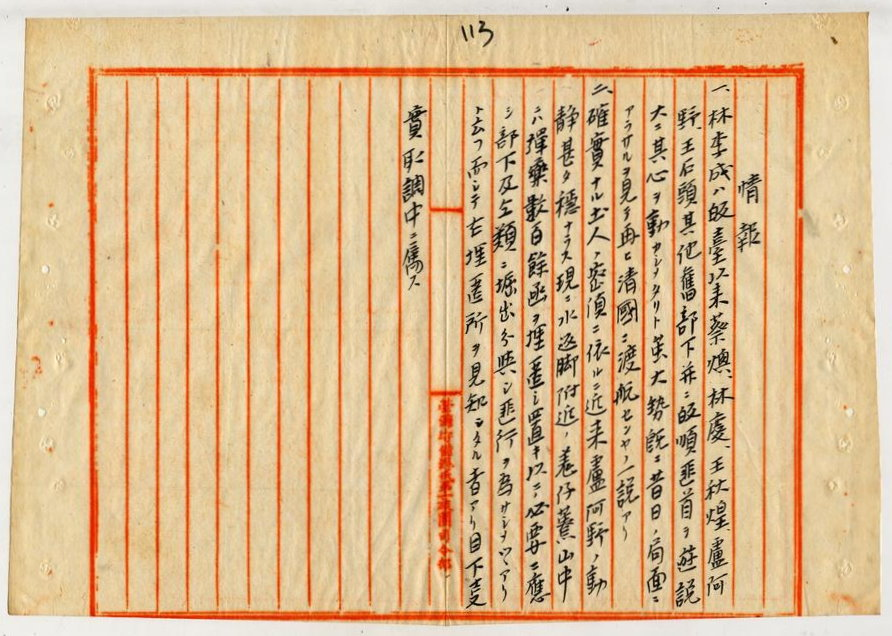 113
情報
一、林李成ハ皈臺以来蔡燠、林慶、王秋煌、盧阿
野、王石頭其他舊部下并ニ皈順匪首ヲ遊説
大ニ其心ヲ動カシメタリト茧大勢既ニ昔日ノ局面ニ
アラサルヲ見テ再ヒ清國ニ渡航センヤノ一説アリ
二、確實ナル土人ノ密偵ニ依ルニ近来盧阿野ノ動
静甚タ穏ナラス現ニ水返脚附近ノ仔藔山中
ニハ彈藥数百餘函ヲ埋匿シ置キ以テ必要ニ應
シ部下及匕類ニ堀出分與シ匪行ヲ為サシメツヽアリ
ト云フ而シテ右埋匿所ヲ見知シタル者アリ目下事
實取調中ニ属ス
臺灣守備混成第一旅團司令部